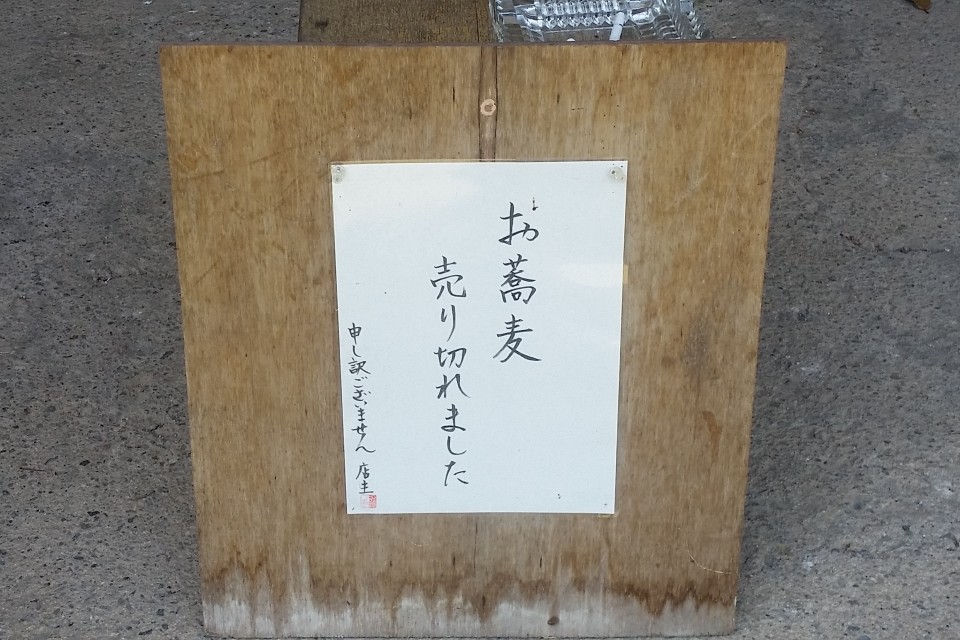 お蕎麦
売り切れました
申し訳ございません 店主